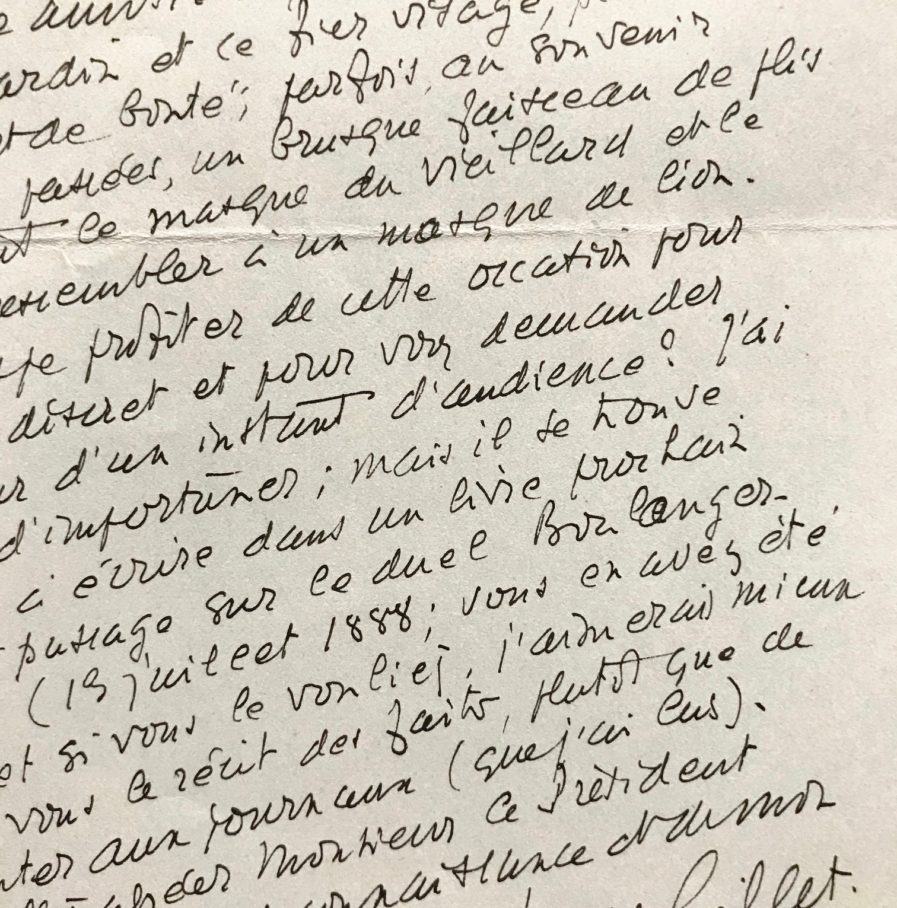 et ce fier visage,
jardin
et de bonté"; parfois, au souvenir
passées, un brusque faisceau de plis
le masque du vieillard et le
ressembler à un masque de lion.
profiter de cette occasion pour
discret et pour vous demander
d'un instant d'audience? J'ai
d'importuner; mais il se trouve
à écrire dans un livre prochain
passage sur le duel Boulanger-
(13 juillet 1888; vous en avez été
et si vous le vouliez, j'aimerais mieux
vous le récit des faits, plutôt que de
aux journaux (que j'ai lus).
Monsieur le Président
et de mon